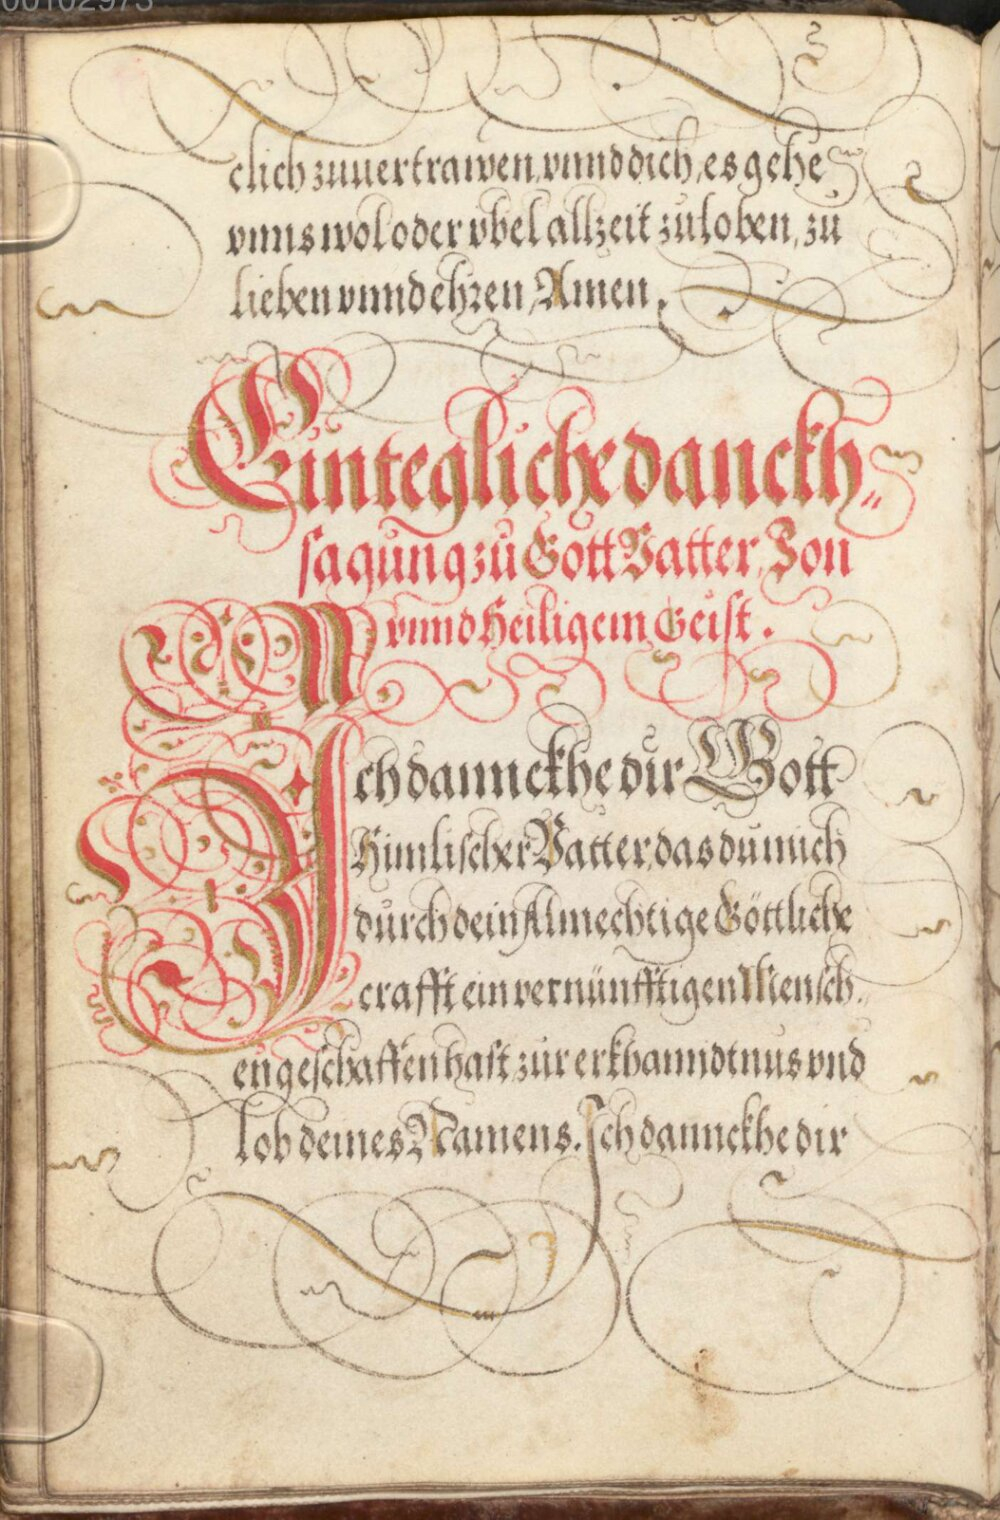 00102973
clich zuuertrawen, vnnd dich, es gehe
vnns wol oder vbel allzeit zu loben, zu
lieben vnnd ehren, Amen.
Ein tegliche danckh„
sagung zu Gott Vatter, Son
vnnd Heiligem Geist.
Ich dannckhe dir Gott
Himlischer Vatter, das du mich
durch dein Almechtige Göttliche
crafft ein vernünfftigen Mensch„
en geschaffen hast, zur erkhanndtnus vnd
lob deines Namens. Ich dannckhe dir